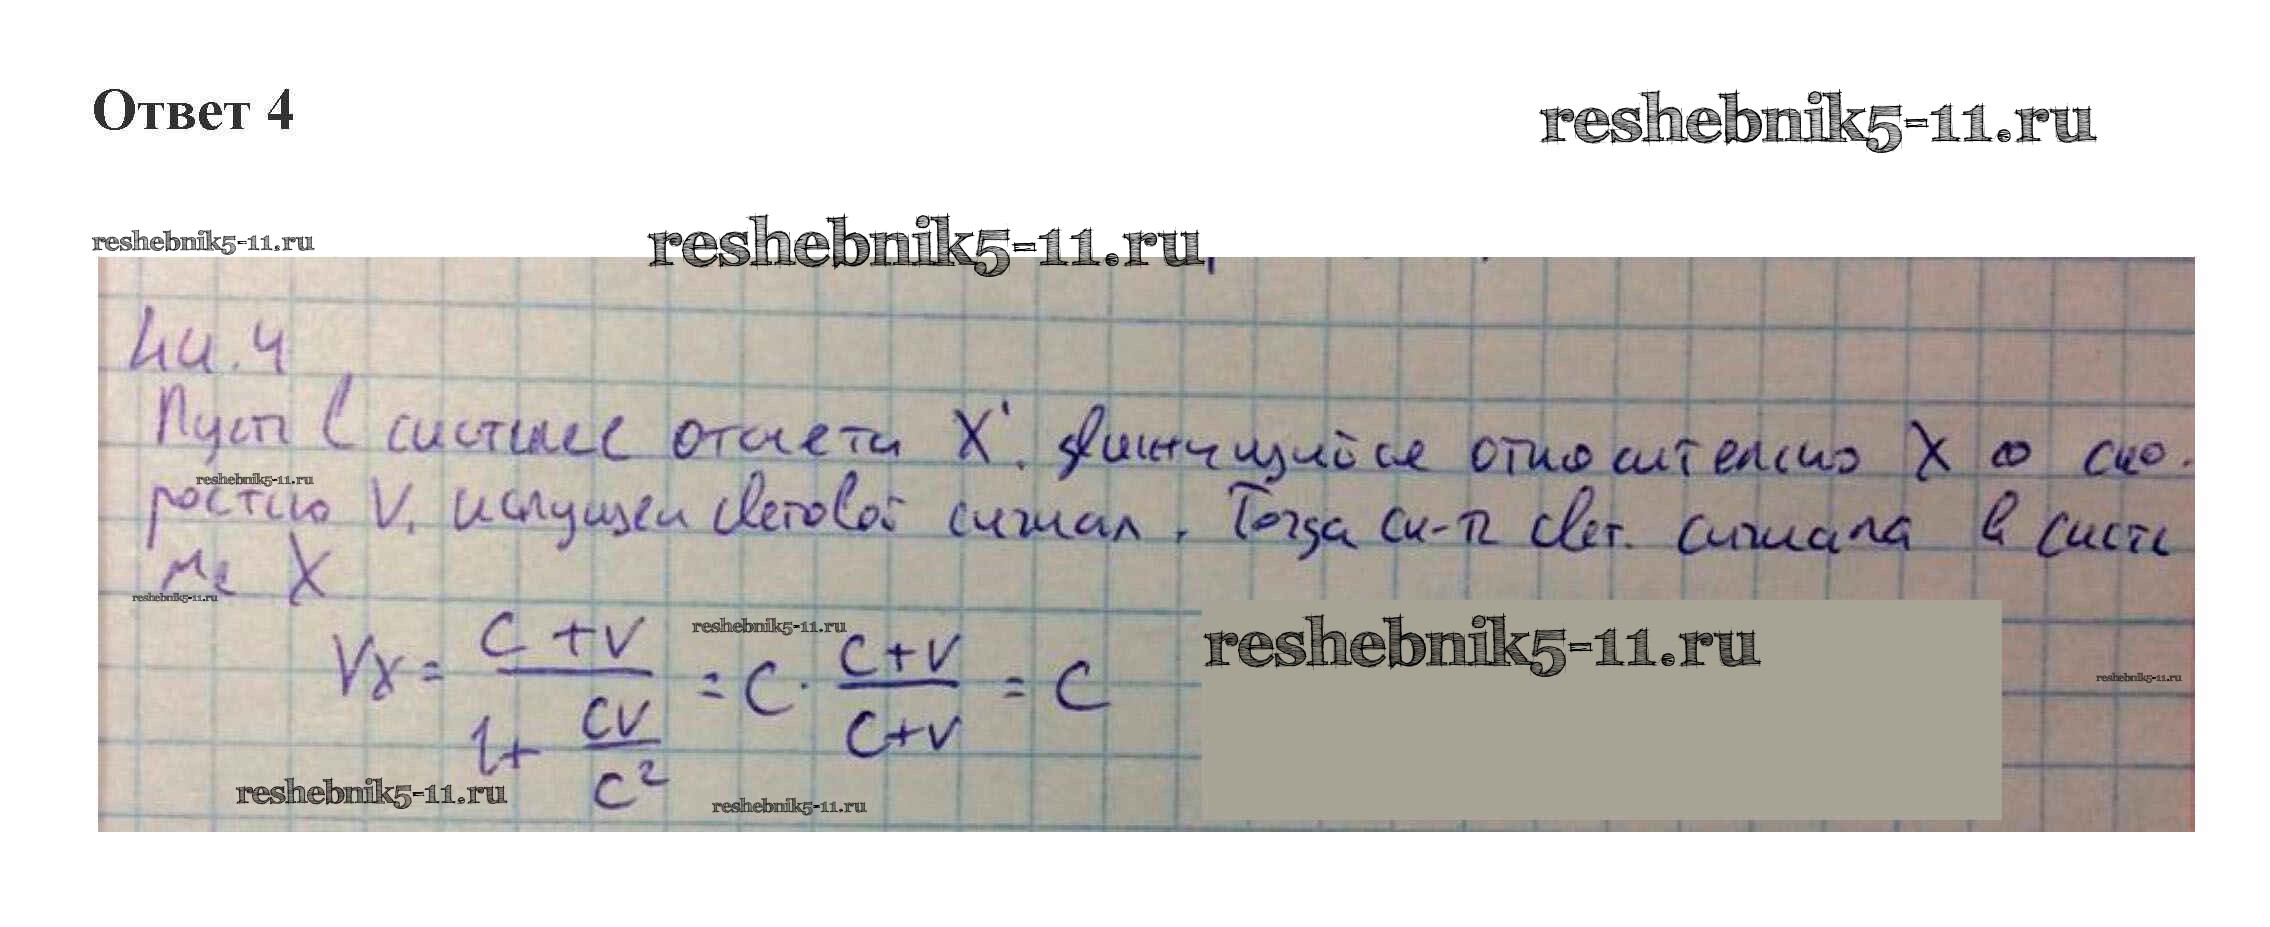 Ответ 4
reshebnik5-11.ru
reshebnik5-11.ru
reshebnik5-11.ru
44.4
Пусть в системе отсчета X' движущийся относительно X со ско-
reshebnik5-11.ru
ростью V, испущен световой сигнал. Тогда ск-ть свет. сигнала в систе
ме X
reshebnik5-11.ru
reshebnik5-11.ru
reshebnik5-11.ru
Vx = (C+V)/(1+ CV/C²) = C · (C+V)/(C+V) = C
reshebnik5-11.ru
reshebnik5-11.ru
reshebnik5-11.ru